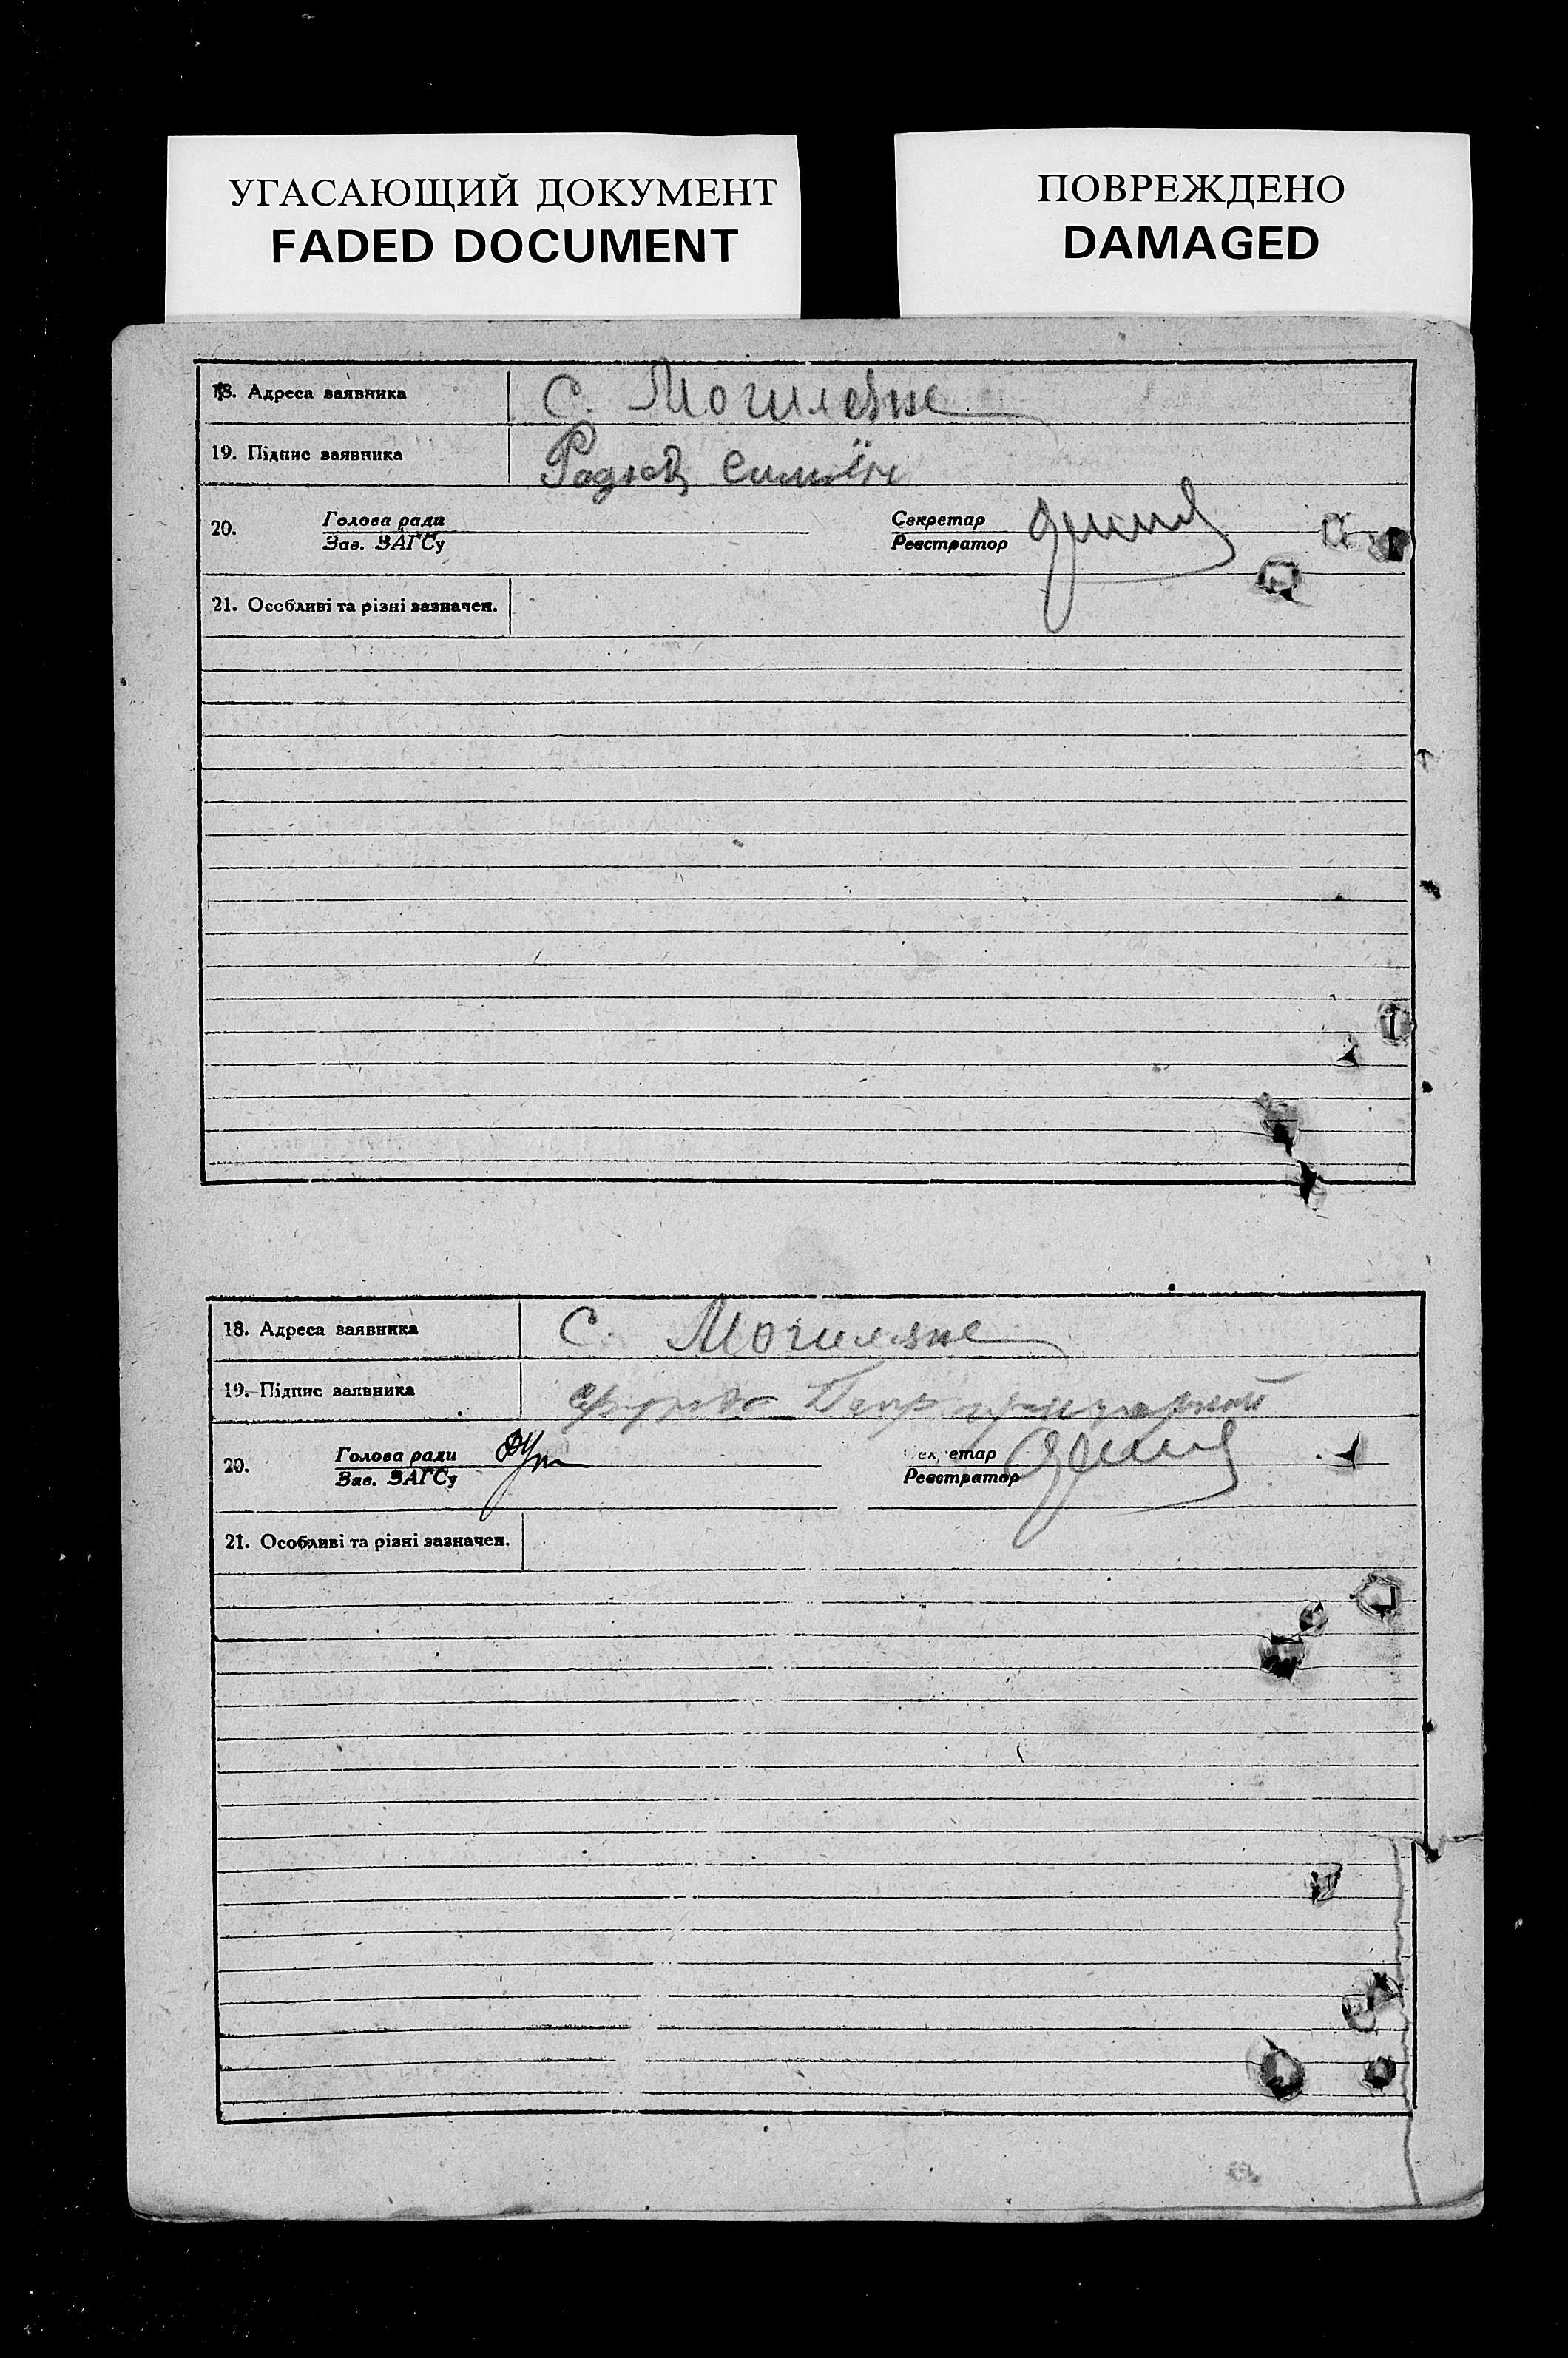 УГАСАЮЩИЙ ДОКУМЕНТ
FADED DOCUMENT
ПОВРЕЖДЕНО
DAMAGED
18. Адреса заявника С. Могиляне
19. Підпис заявника
20. Голова ради Секретар
Зав. ЗАГСу Реєстратор
21. Особливі та різні зазначен.
18. Адреса заявника С. Могиляне
19. Підпис заявника
20. Голова ради Секретар
Зав. ЗАГСу Реєстратор
21. Особливі та різні зазначен.